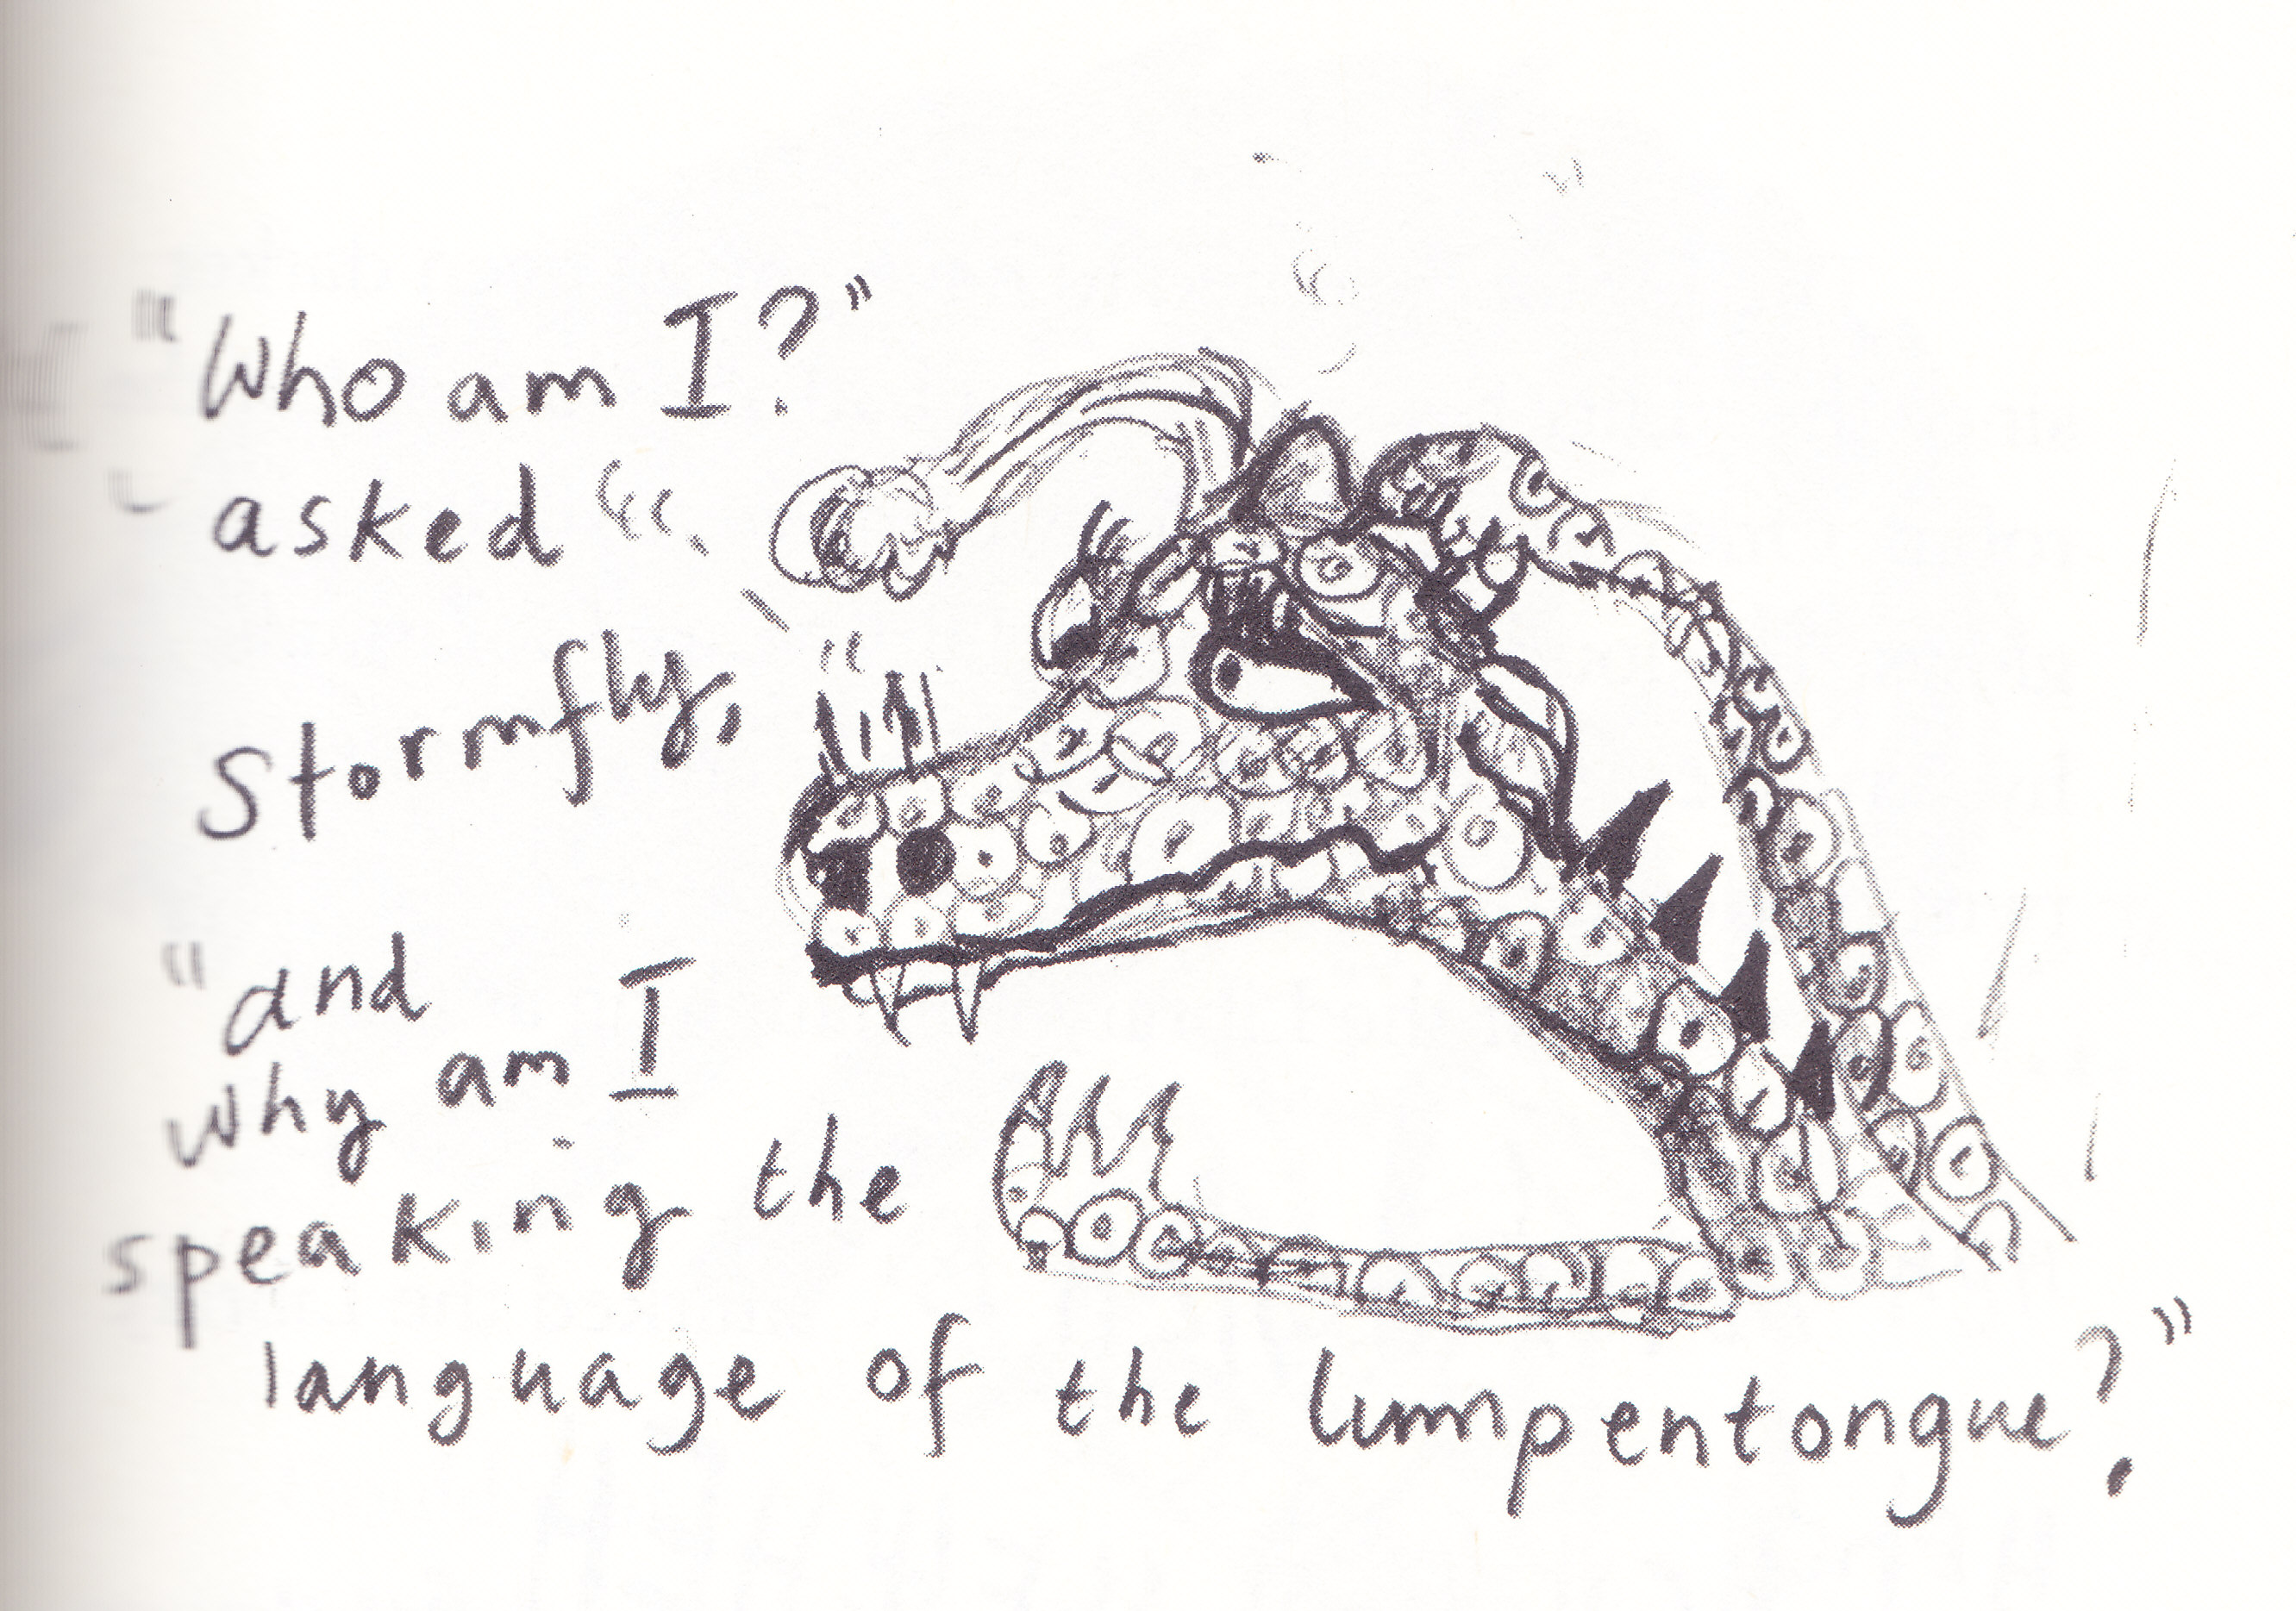 "Who am I?"
asked
Stormfly,
"and
why am I
speaking the
language of the lumpentongue?"